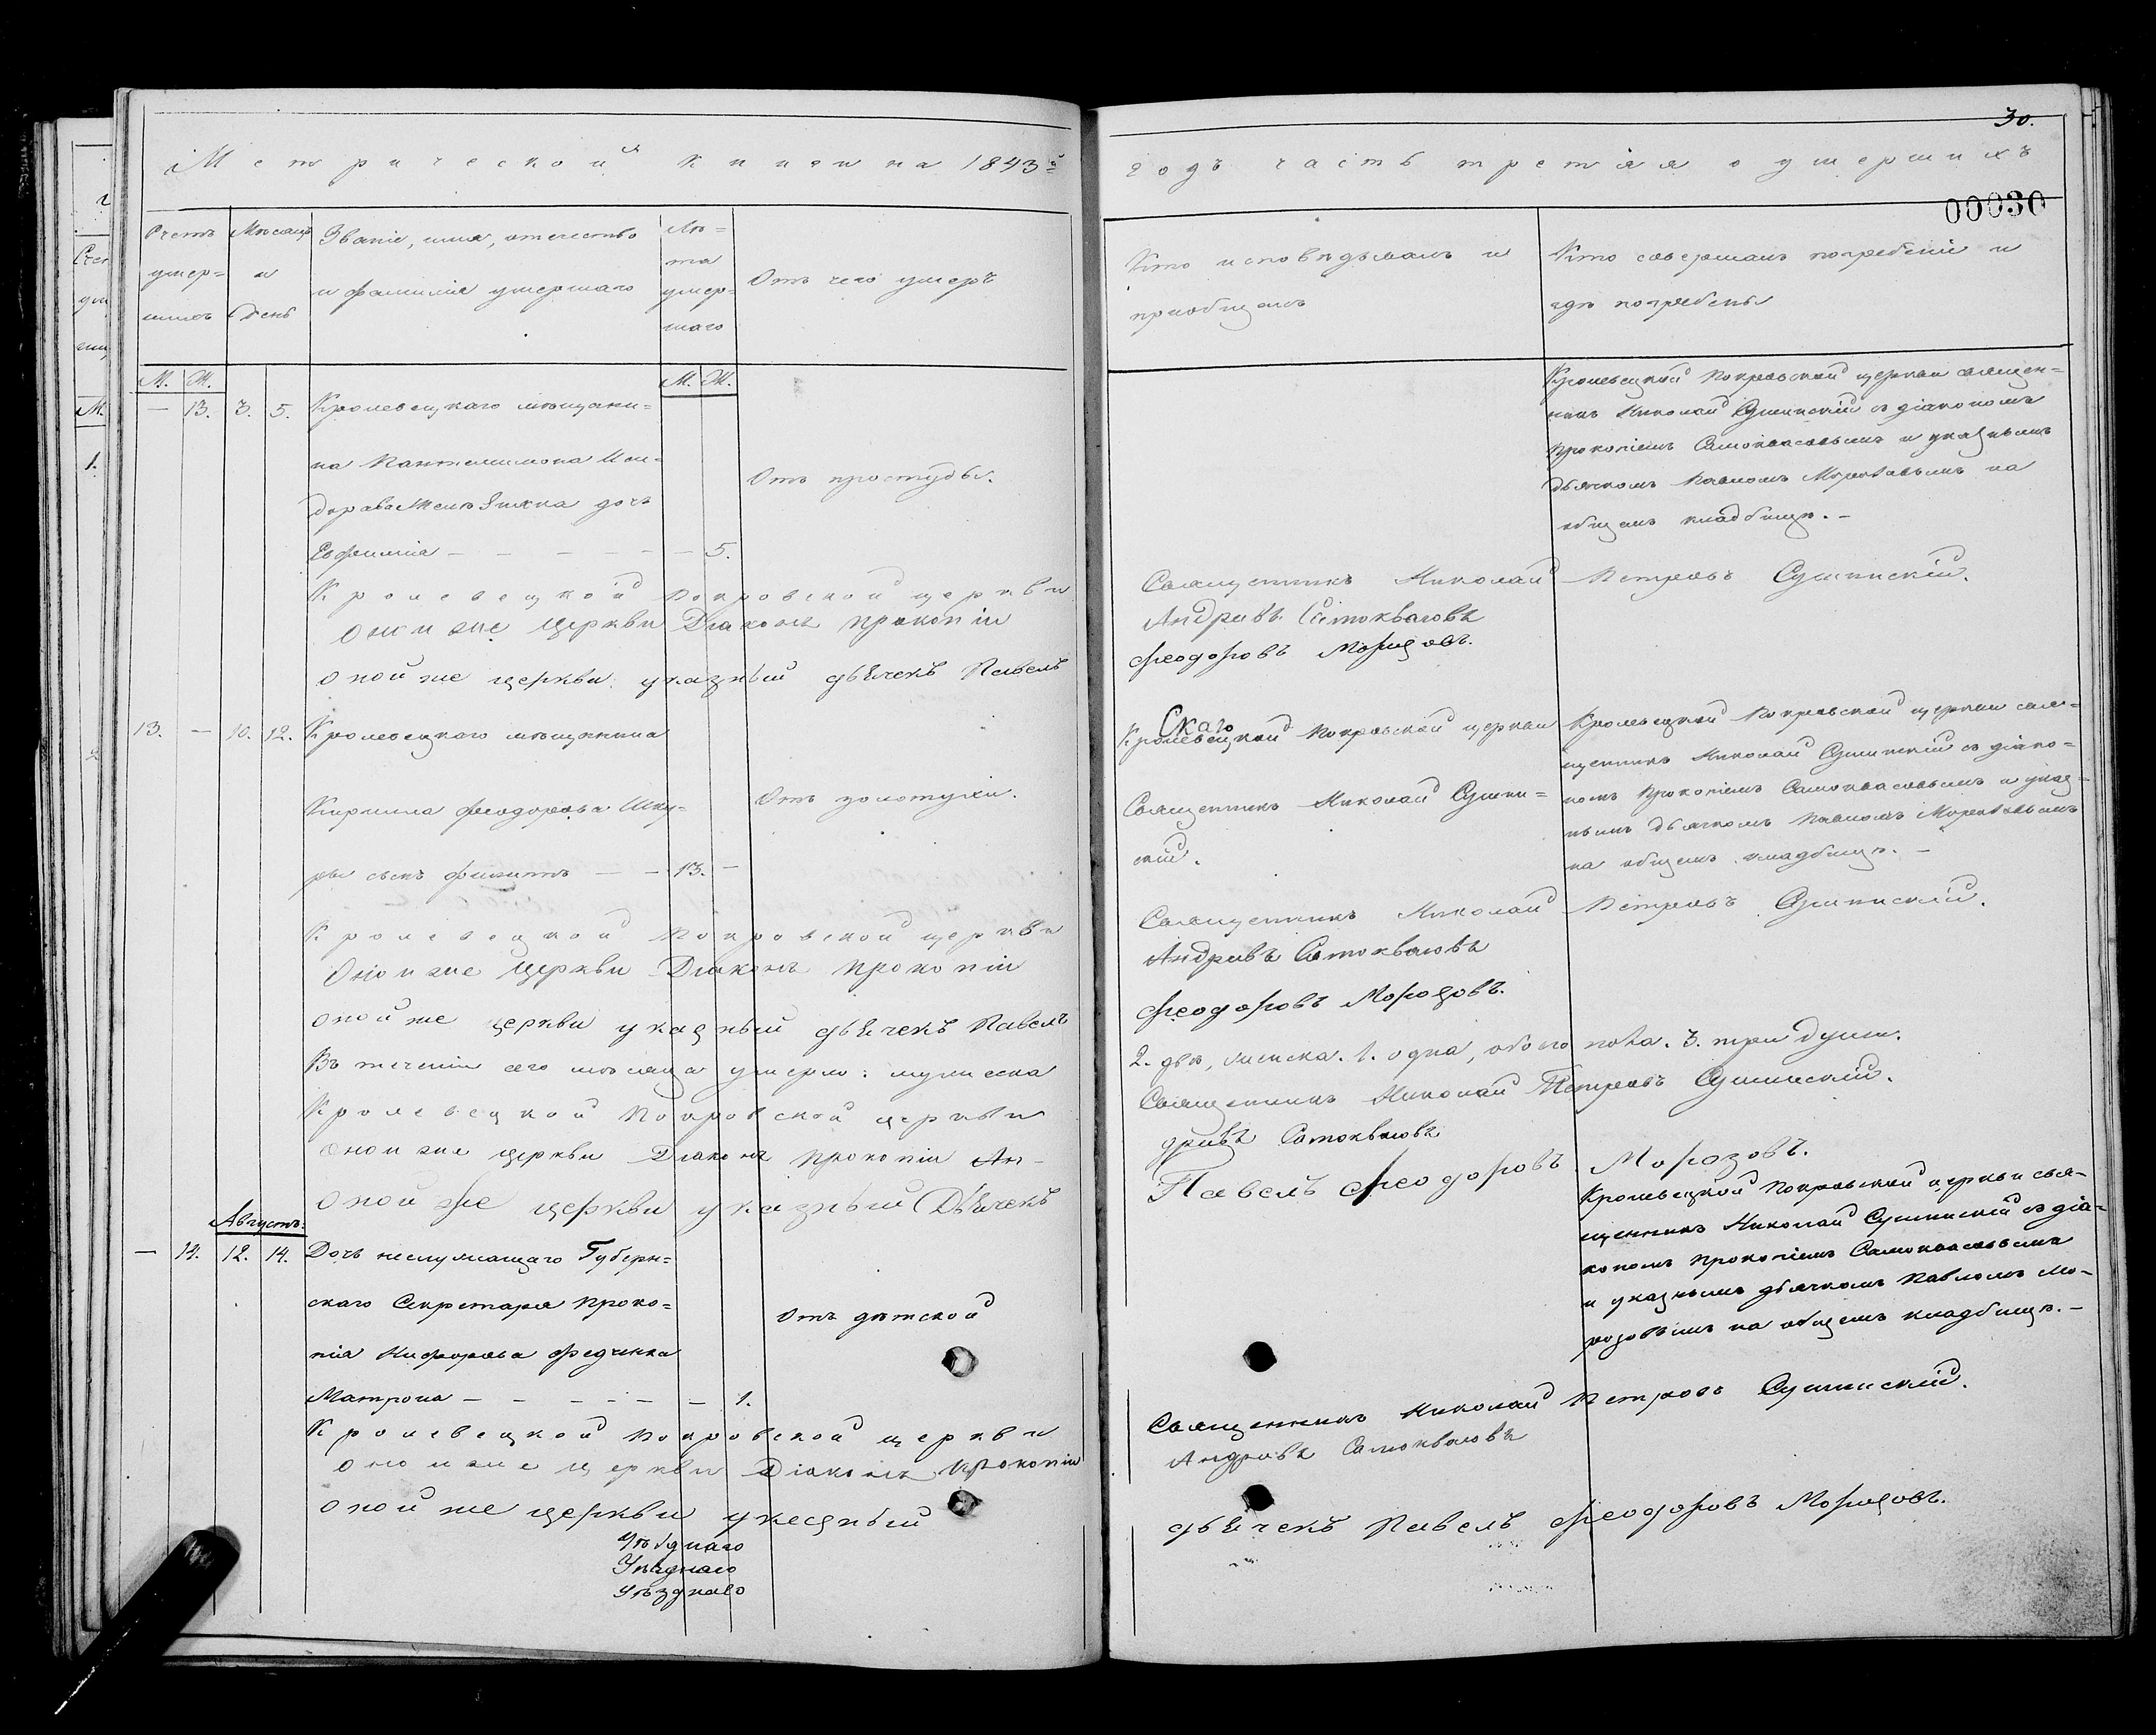 30.
Метрической книги на 1843й
годъ часть третія о умершихъ
00030
Счетъ умер=шихъ
Мѣсяцъ и День
Званіе, имя, отечество
и фамилія умершаго
Лѣ=та умер=шаго
Отъ чего умеръ
Кто исповѣдывалъ и
пріобщалъ
Кто совершалъ погребеніе и
гдѣ погребены
М. Ж.
М. Ж.
— 13. 3. 5. Кролевецкаго мѣщани=
на Пантелимона Иси=
дорова дочь
Евфимія — — — — — 5.
Отъ простуды.
Кролевецкой Покровской церкви священ=
никъ Николай Сушинскій съ діакономъ
Прокопіемъ Самоквасовымъ и указнымъ
дьячкомъ Павломъ Морозовымъ на
общемъ кладбищѣ. —
Кролевецкой Покровской церкви
Священникъ Николай Петровъ Сушинскій.
Оной же Церкви Діаконъ Прокопій
Андриевъ Самоквасовъ
Оной же церкви указный дьячекъ Павелъ
Феодоровъ Морозовъ.
13. — 10. 12. Кролевецкаго мѣщанина
Кирилла Феодорова Шку=
ры сынъ — — 13. —
Отъ золотухи.
Скаго
Кролевецкой Покровской церкви
Священникъ Николай Сушин=
скій.
Кролевецкой Покровской церкви свя=
щенникъ Николай Сушинскій съ діако=
номъ Прокопіемъ Самоквасовымъ и указ=
нымъ дьячкомъ Павломъ Морозовымъ
на общемъ кладбищѣ. —
Кролевецкой Покровской церкви
Священникъ Николай Петровъ Сушинскій.
Оной же Церкви Діаконъ Прокопій
Андриевъ Самоквасовъ
Оной же церкви указный дьячекъ Павелъ
Феодоровъ Морозовъ.
Въ теченіи сего мѣсяца умерло: мужеска
2. два, женска. 1. одна, обоего пола. 3. три души.
Кролевецкой Покровской церкви
Священникъ Николай Петровъ Сушинскій.
Оной же церкви Діаконъ Прокопій Ан-
дриевъ Самоквасовъ
Оной же церкви указный Дьячекъ
Павелъ Феодоровъ Морозовъ.
Августъ.
— 14. 12. 14. Дочь неслужащаго Губерн=
скаго Секретаря Проко=
пія Никифорова Федченка
Матрона — — — — — — 1.
Отъ дѣтской
Кролевецкой Покровской церкви свя=
щенникъ Николай Сушинскій съ діа=
кономъ Прокопіемъ Самоквасовымъ
и указнымъ дьячкомъ Павломъ Мо=
розовымъ на общемъ кладбищѣ. —
Кролевецкой Покровской церкви
Священникъ Николай Петровъ Сушинскій.
Оной же церкви Діаконъ Прокопій
Андриевъ Самоквасовъ
Оной же церкви указный
дьячекъ Павелъ Феодоровъ Морозовъ.
Уѣзднаго
Уѣзднаго
Уѣзднаго